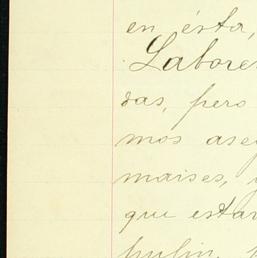 en ésta,
Labore
das, pero
mos ase
maises, y
que estar
hulin, p